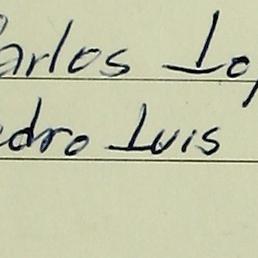 Carlos Lop
edro Luis